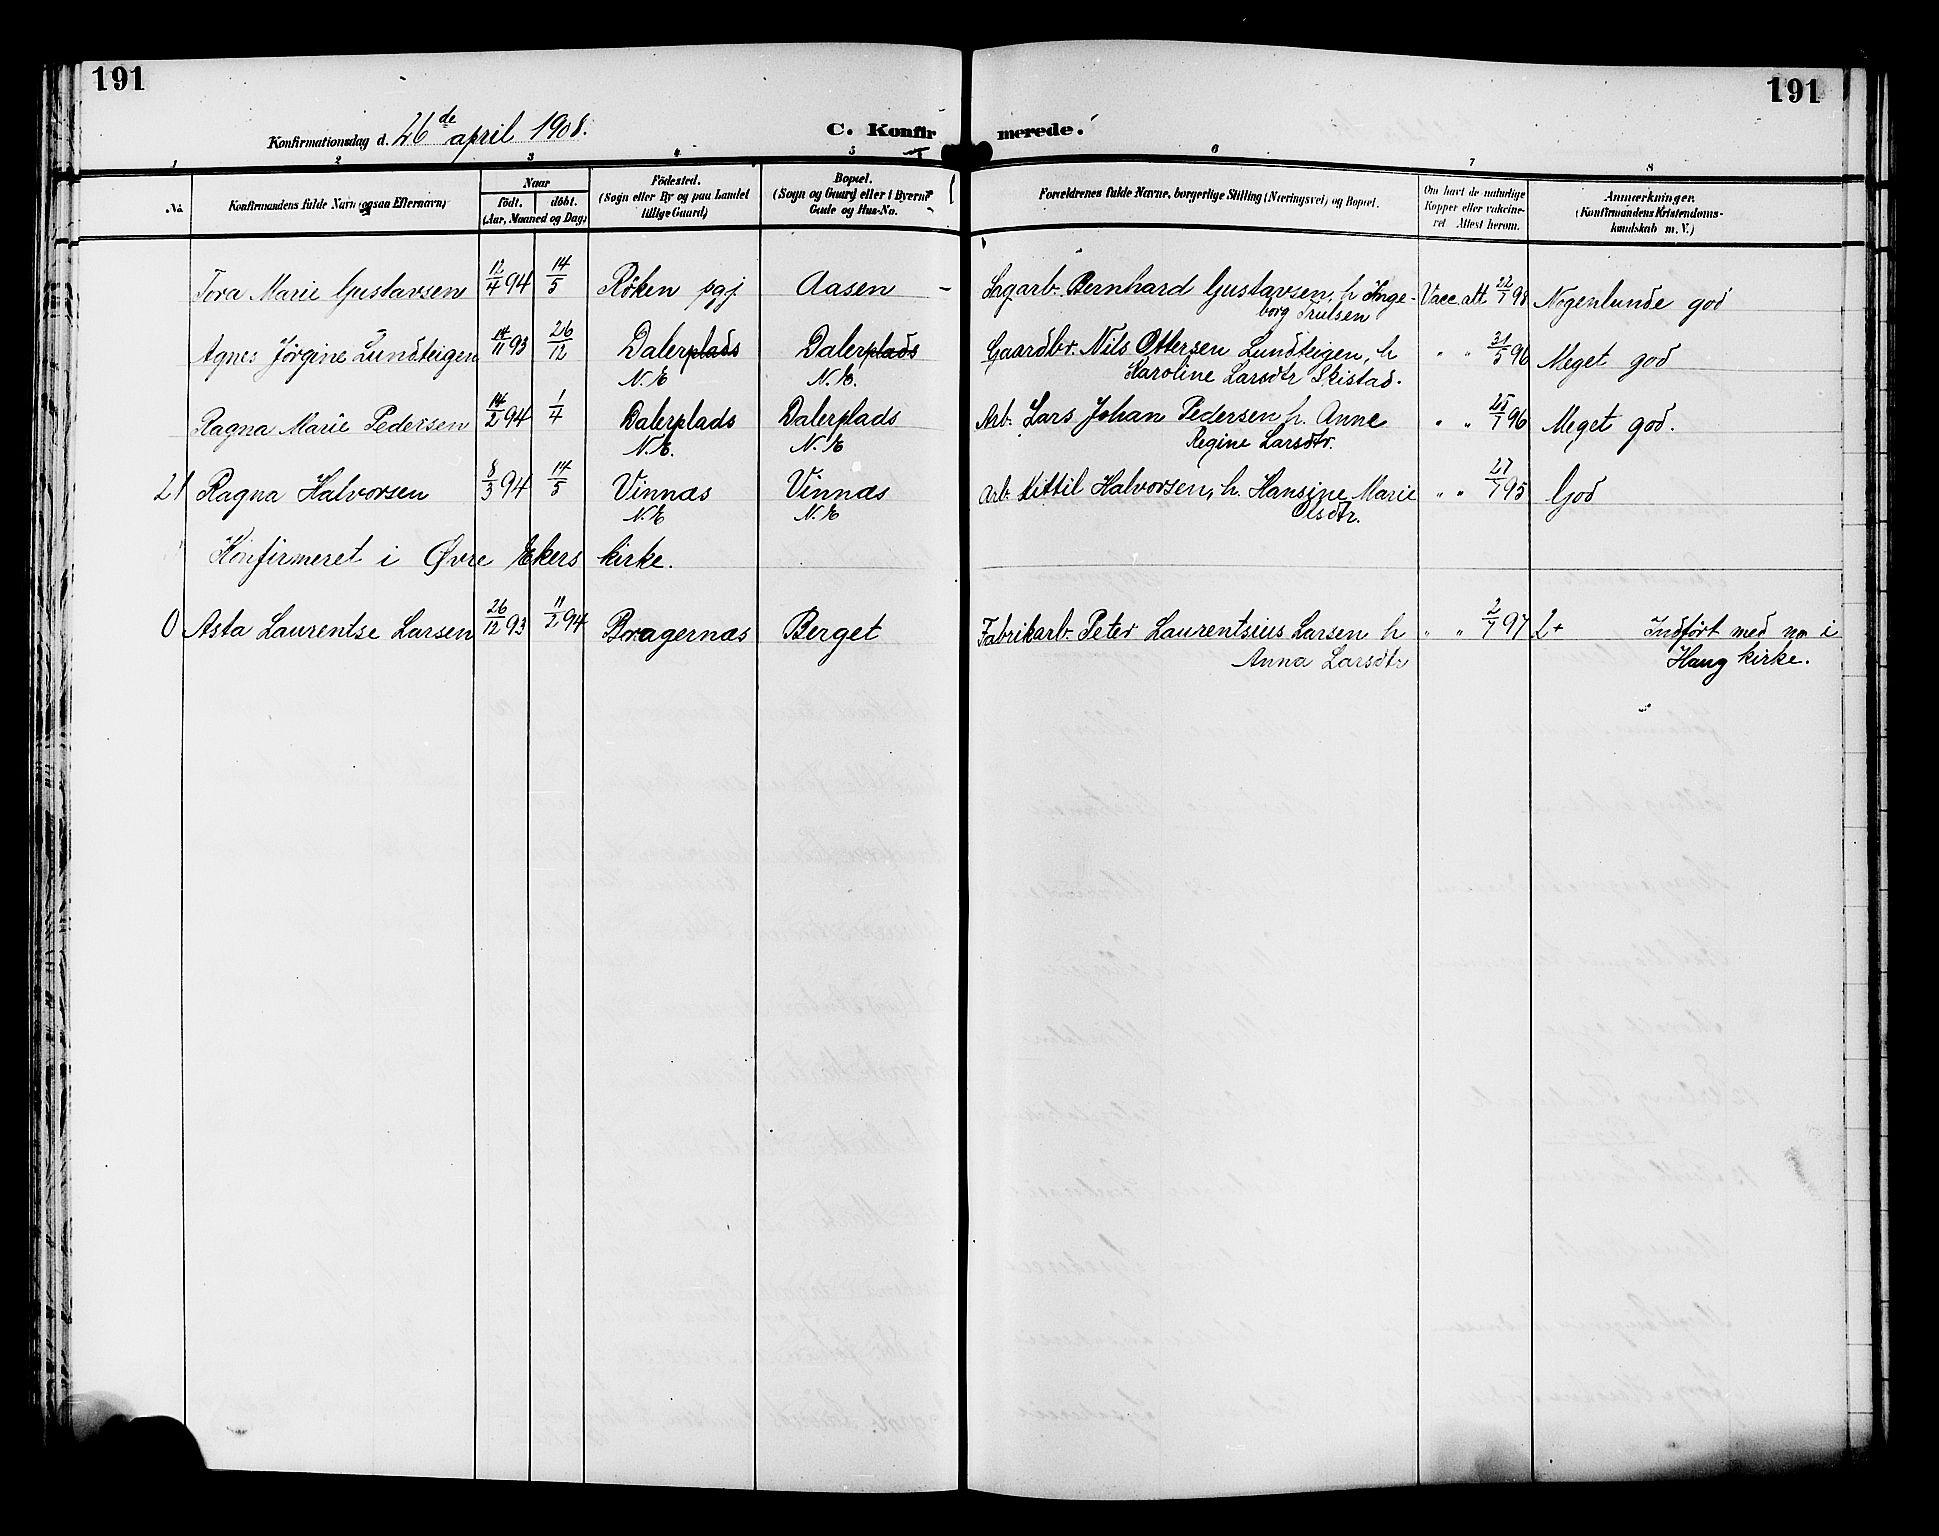 191
191
Konfirmationsdag d. 26de april 1908.
C. Konfir merede.
1 2 3 4 5 6 7 8
No.
Konfirmandens fulde Navn (ogsaa Efternavn)
Naar
født. døbt.
(Aar, Maaned og Dag)
Fødested.
(Sogn eller By og paa Landet
tillige Gaard)
Bopæl.
(Sogn og Gaard eller i Byerne
Gade og Hus-No.
Forældrenes fulde Navne, borgerlige Stilling (Næringsvei) og Bopæl.
Om havt de naturlige
Kopper eller vakcine-
ret Attest herom.
Anmærkninger.
(Konfirmandens Kristendoms-
kundskab m. V.)
Tora Marie Gustavsen 12/4 94 14/5 Røken pgj. Aasen - Sagarb. Bernhard Gustavsen, h Inge- Vacc. att. 22/7 98 Nogenlunde god
borg Trulsen
Agnes Jørgine Lundteigen 14/11 93 26/12 Dalerplads Dalerplads Gaardbr. Nils Ottersen Lundteigen, h " " 31/5 96 Meget god
N. E N. E. Karoline Larsdtr Skistad.
Ragna Marie Pedersen 14/2 94 1/4 Dalerplads Dalerplads Arb. Lars Johan Pedersen h. Anne " " 25/7 96 Meget god.
N. E. N. E Regine Larsdtr.
21 Ragna Halvorsen 8/3 94 14/5 Vinnæs Vinnæs Arb. Kittil Halvorsen, h. Hansine Marie " " 27/7 95 God
N. E N. E Olsdtr.
Konfirmeret i Øvre Ekers kirke.
0 Asta Laurentse Larsen 26/12 93 11/2 94 Bragernæs Berget Fabrikarb. Peter Laurentsius Larsen h " " 2/7 97 2+ Indført med no i
Anna Larsdtr Haug kirke.